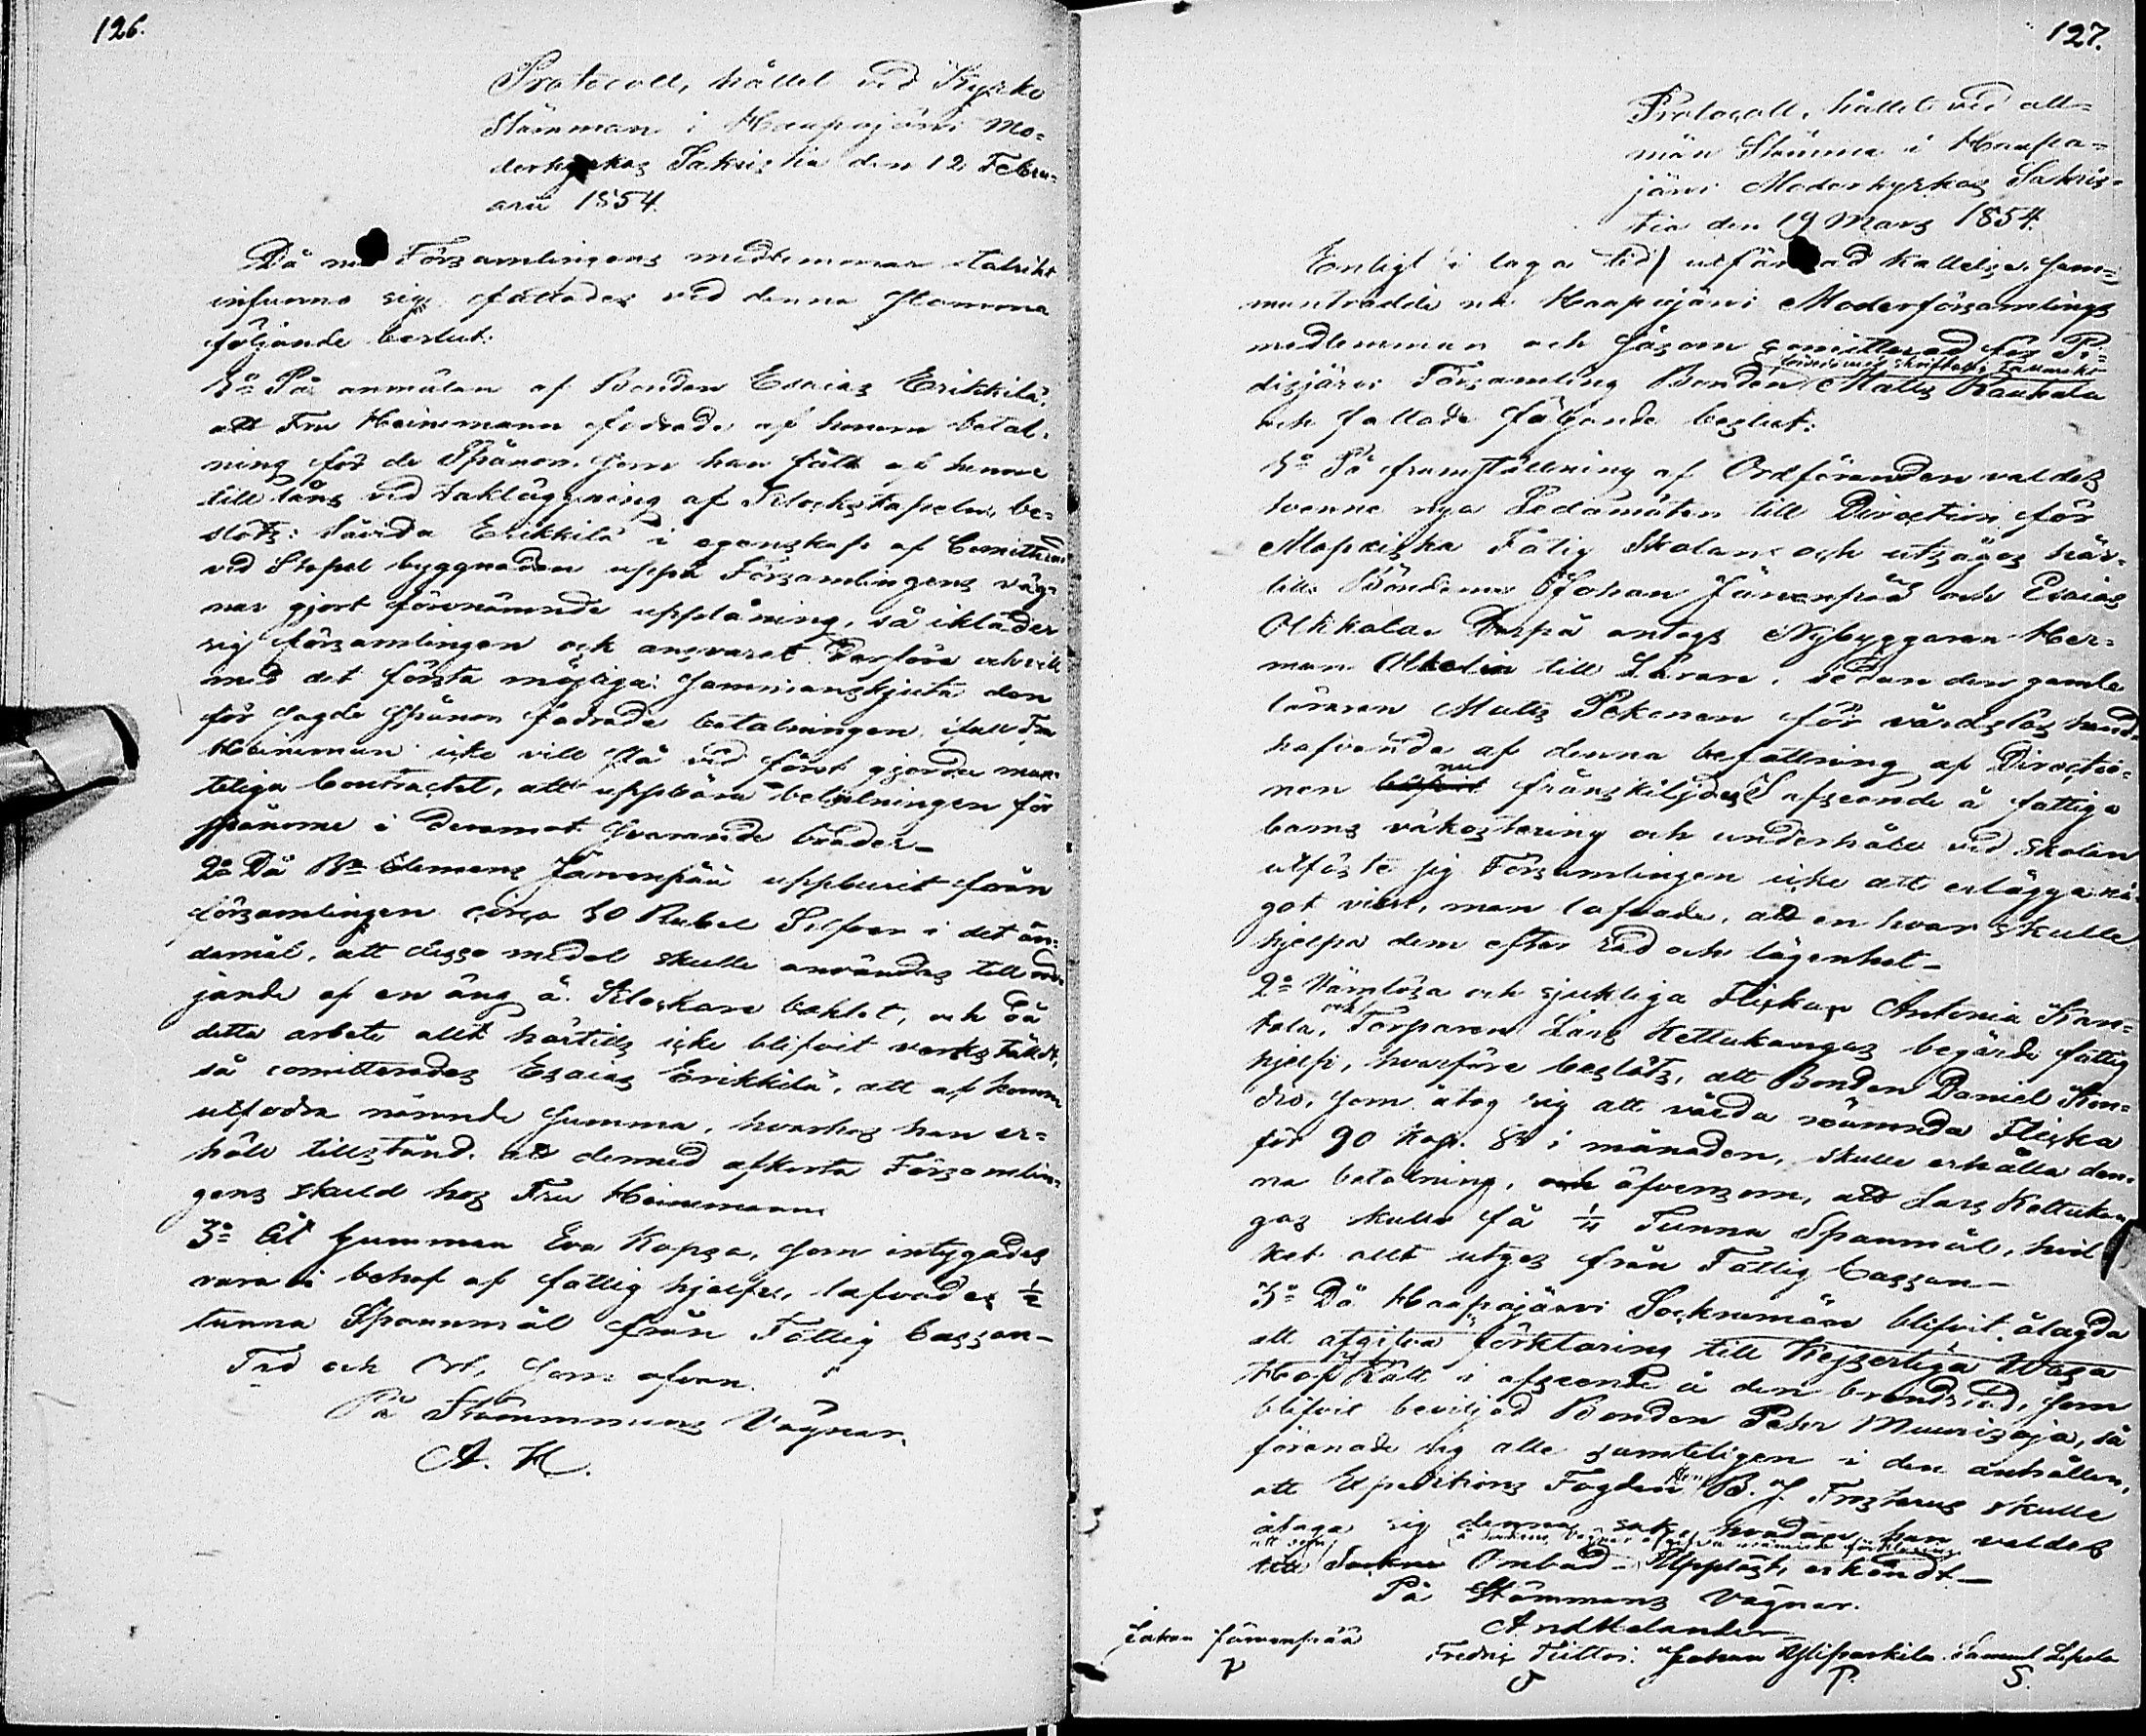 126.
Protocoll, hållet vid Kyrko
Stämman i Haapajärvi Mo=
derkyrkas Sakristia den 12 Febru=
arii 1854.
Då nu Församlingens medlemmar talrikt
infunno sig, fattades vid denna Stämma
följande beslut:
1o På anmälan af Bonden Esaias Erikkilä,
att Fru Heinemann fodrade af honom betal=
ning för de Spånor, som han fått af henne
till låns vid takläggning af Klockstapeln, be=
slöts: Såvida Erikkilä i egenskap af Comitterad
vid Stapel byggnaden uppå Församlingens väg=
nar gjort förenämnde upplåning, så ikläder
sig församlingen ock ansvaret derföre och vill
med det första möjliga sammanskjuta den
för sagde Spånor fodrade betalningen, ifall Fru
Heineman icke vill stå vid först gjorda mun=
teliga Contractet, att uppbära betalningen för
spånorne i deremot svarande bräder_
2o Då Bn Clemens Järvenpää uppburit från
församlingen circa 30 Rubel Silfver i det än=
damål, att desse medel skulle användas till
jande af en äng å Klockare bohlet, och då
detta arbete allt härtills icke blifvit verkstäldt,
så comitterades Esaias Erikkilä, att af honom
utfodra nämnde Summa, hvarhos han er=
höll tillstånd att dermed afkorta Församlin=
gens skuld hos Fru Heinemann.
3o Åt Gumman Eva Kopsa, som intygades
vara i behof af fattig hjelpen, lofvades 1/2
tunna Spannmål från Fattig Cassan_
Tid och Ort, som ofvan.
På Stämmans Vägnar.
A. H.
127.
Protocoll, hållet vid all=
män Stämma i Haapa=
järvi Moderkyrkas Sakris=
tia den 19 Mars 1854.
Enligt i laga tid utfärdad kallelse, sam=
manträdde nu Haapajärvi Moderförsamlings
medlemmar och såsom comitterad för Pi=
disjärvi Församling Bonden Matts Kaukala
försedd med skriftelig fullmakt
och fattade följande beslut:
1o På framställning af Ordföranden valdes
tvenne nya Ledamöter till Direction för
Fattig Skolan och utsågos här=
till Bönderne Johan Järvenpää och Esaias
Olkkola. Derpå antogs Nybyggaren Her=
man till Lärare, sedan den gamle
läraren Matts Pekonen för vårdslös hand=
hafvande af denna befattning af Directio=
nen nu frånskiljdes. I afseende å fattiga
barns väkostering och underhåll vid skolan
utfäste sig Församlingen icke att erlägga nå=
got visst, men lofvade, att en hvar skulle
hjelpa dem efter råd och lägenhet_
2o Värnlösa och sjukliga Flickan Antonia Kan=
tola, och Torparen Lars Kettukangas begärde fattig
hjelp, hvarföre beslöts, att Bonden Daniel
som åtog sig att vårda nämnda Flicka
för 90 Kop. Sr i månaden, skulle erhålla den=
na betalning, och äfvensom, att Lars Kettukan
gas skulle få 1/4 Tunna Spanmål, hvil
ket allt utges från Fattig Cassan_
3o Då Haapajärvi Socknemän blifvit ålagda
att afgifva förklaring till Kejserliga Wasa
Hof Rätt i afseende å den brandstod, som
blifvit beviljad Bonden Petter Muurisoja, så
förenade sig alla samteligen i den anhållan,
att Expeditions Fogden Herr B. J. Frosterus skulle
åtaga sig denna sak, hvadan han valdes
att som å nämnde förklaring
till Sockne Ombud_ Uppläst, erkändt_
På Stämmans Vägnar.
And Helander
Johan Järvenpää Fredric Tiitto. Johan Yliparkila. Samuel Lepola